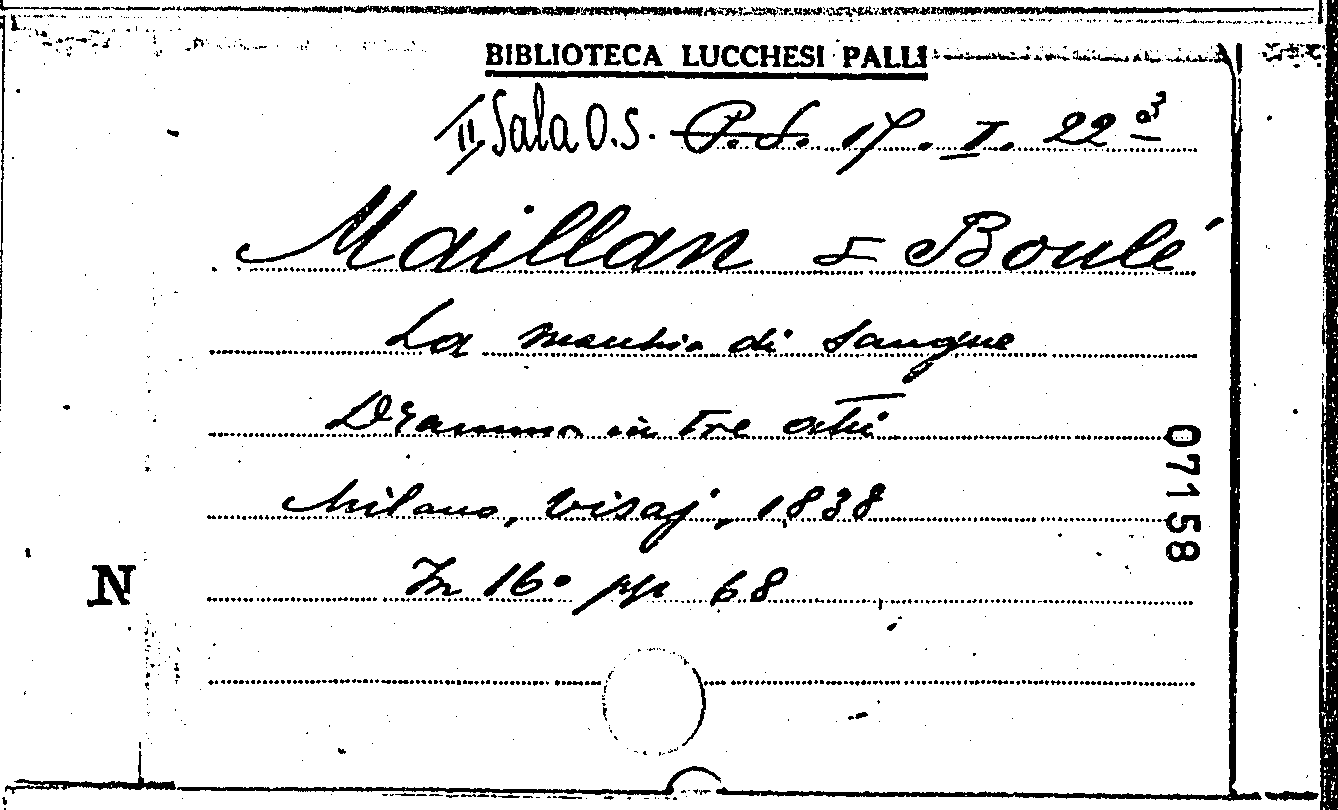 BIBLIOTECA LUCCHESI PALLI
II Sala O.S. P.S. 17. I. 22 a3
Maillan e Boulé
La macchia di sangue
Dramma in tre atti
Milano, Visaj, 1838
In 16º pp 68
07158
N